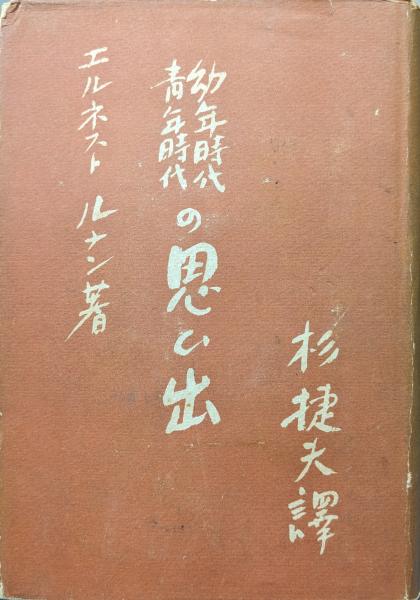 杉捷夫譯
幼年時代
青年時代
の思ひ出
エルネスト ルナン著